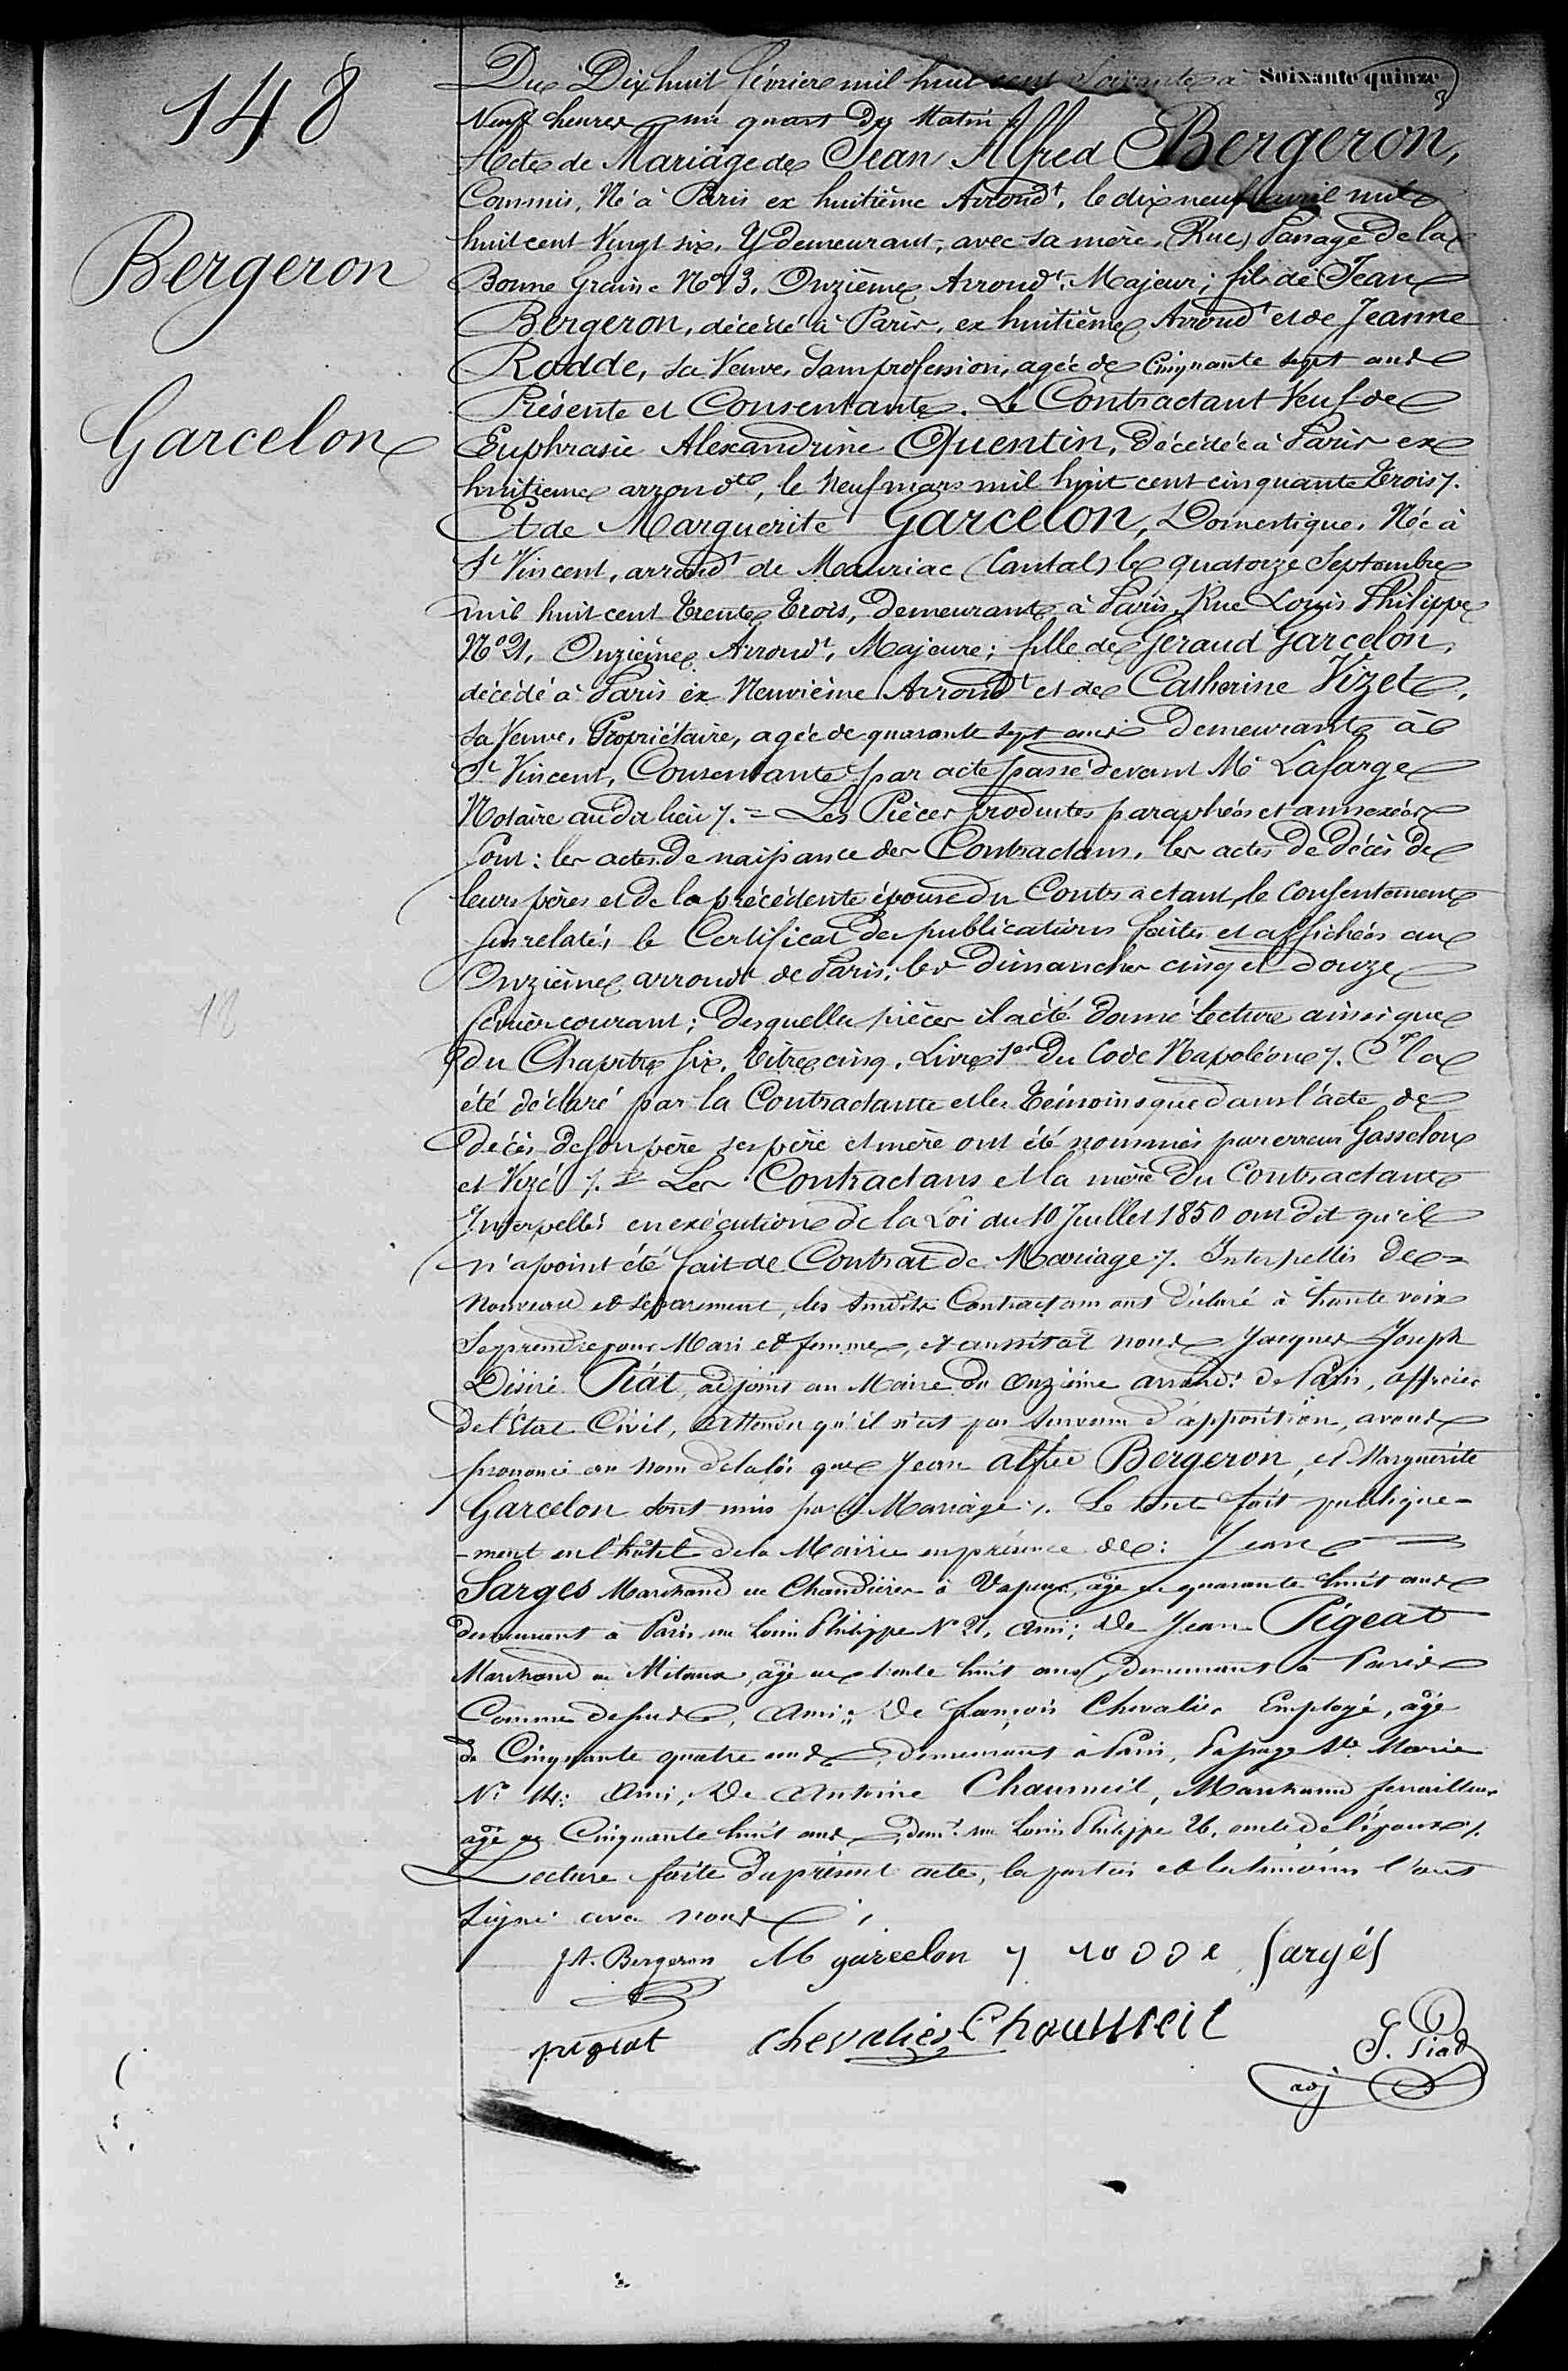 148
Bergeron
Garcelon
18
Soixante quinze
Du Dix huit février mil huit cent Soixante à
Neuf heures un quart du Matin
Acte de Mariage de Jean Alfred Bergeron,
Commis, Né à Paris ex huitième Arrondt, le dix neuf avril mil
huit cent Vingt six, Y demeurant, avec sa mère, (Rue) Passage de la
Bonne Graine No 13, Onzième Arrondt. Majeur; fils de Jean
Bergeron, décédé à Paris, ex huitième Arrondt et de Jeanne
Rodde, sa Veuve, Sans profession, agée de Cinquante sept ans
Présente et Consentante. Le Contractant Veuf de
Euphrasie Alexandrine Quentin, Décédée à Paris ex
huitième arrondt, le Neuf mars mil huit cent cinquante trois /.
Et de Marguerite Garcelon, Domestique, Née à
St Vincent, arrondt de Mauriac (Cantal) le quatorze Septembre
mil huit cent trente trois, Demeurante à Paris, Rue Louis Philippe
No 21, Onzième Arrondt, Majeure; fille de Geraud Garcelon,
décédé à Paris ex Neuvième Arrondt et de Catherine Vizet,
sa Veuve, Propriétaire, agée de quarante sept ans Demeurante à
St Vincent, Consentante par acte passé devant Me Lafarge
Notaire au dit lieu /. = Les Pièces produites paraphées et annexées
sont: les actes de naissance des Contractans, les actes de Décès de
leurs pères et de la précédente épouse du Contractant, le Consentement
susrelaté, le Certificat de publications faites et affichées au
Onzième arrondt de Paris, les Dimanches cinq et douze
février courant; Desquelles pièces il a été donné lecture ainsi que
du Chapitre Six, titre cinq, Livre 1er Du Code Napoléon /. Il a
été déclaré par la Contractante et les témoins que dans l'acte de
décès de son père ses père et mère ont été nommés par erreur Gasselon
et Vizé /. = Les Contractans et la mère Du Contractant
Interpellés en exécution de la Loi du 10 Juillet 1850 ont dit qu'il
n'a point été fait de Contrat de Mariage /. Interpellés de
nouveau et séparement, les susdits Contractans ont déclaré à haute voix
Se prendre pour Mari et femme, et aussitôt nous Jacques Joseph
Désiré Piat, adjoint au Maire du Onzième arrondt de Paris, officier
de l'Etat Civil, attendu qu'il n'est pas survenu d'opposition, avons
prononcé au nom de la loi que Jean Alfred Bergeron, et Marguerite
Garcelon sont unis par le Mariage /. Le tout fait publique-
-ment en l'hôtel de la Mairie en présence de: Jean
Sarges Marchand de Chaudières à Vapeur, agé de quarante huit ans
demeurant à Paris rue Louis Philippe No 21, ami; De Jean Pigeat
Marchand de Métaux, agé de trente huit ans, demeurant à Paris
Comme dessus, Ami; De François Chevalier Employé, agé
de Cinquante quatre ans, demeurant à Paris, Passage Ste Marie
No 14: Ami; De Antoine Chaumeil, Marchand ferrailleur
agé de Cinquante huit ans, demt. rue Louis Philippe 26, oncle de l'épouse /.
Lecture faite du présent acte, les parties et les témoins l'ont
signé avec nous /.
J A. Bergeron M garcelon J rodde Sargés
pigeat chevalier Chaumeil
J. Piat
adj